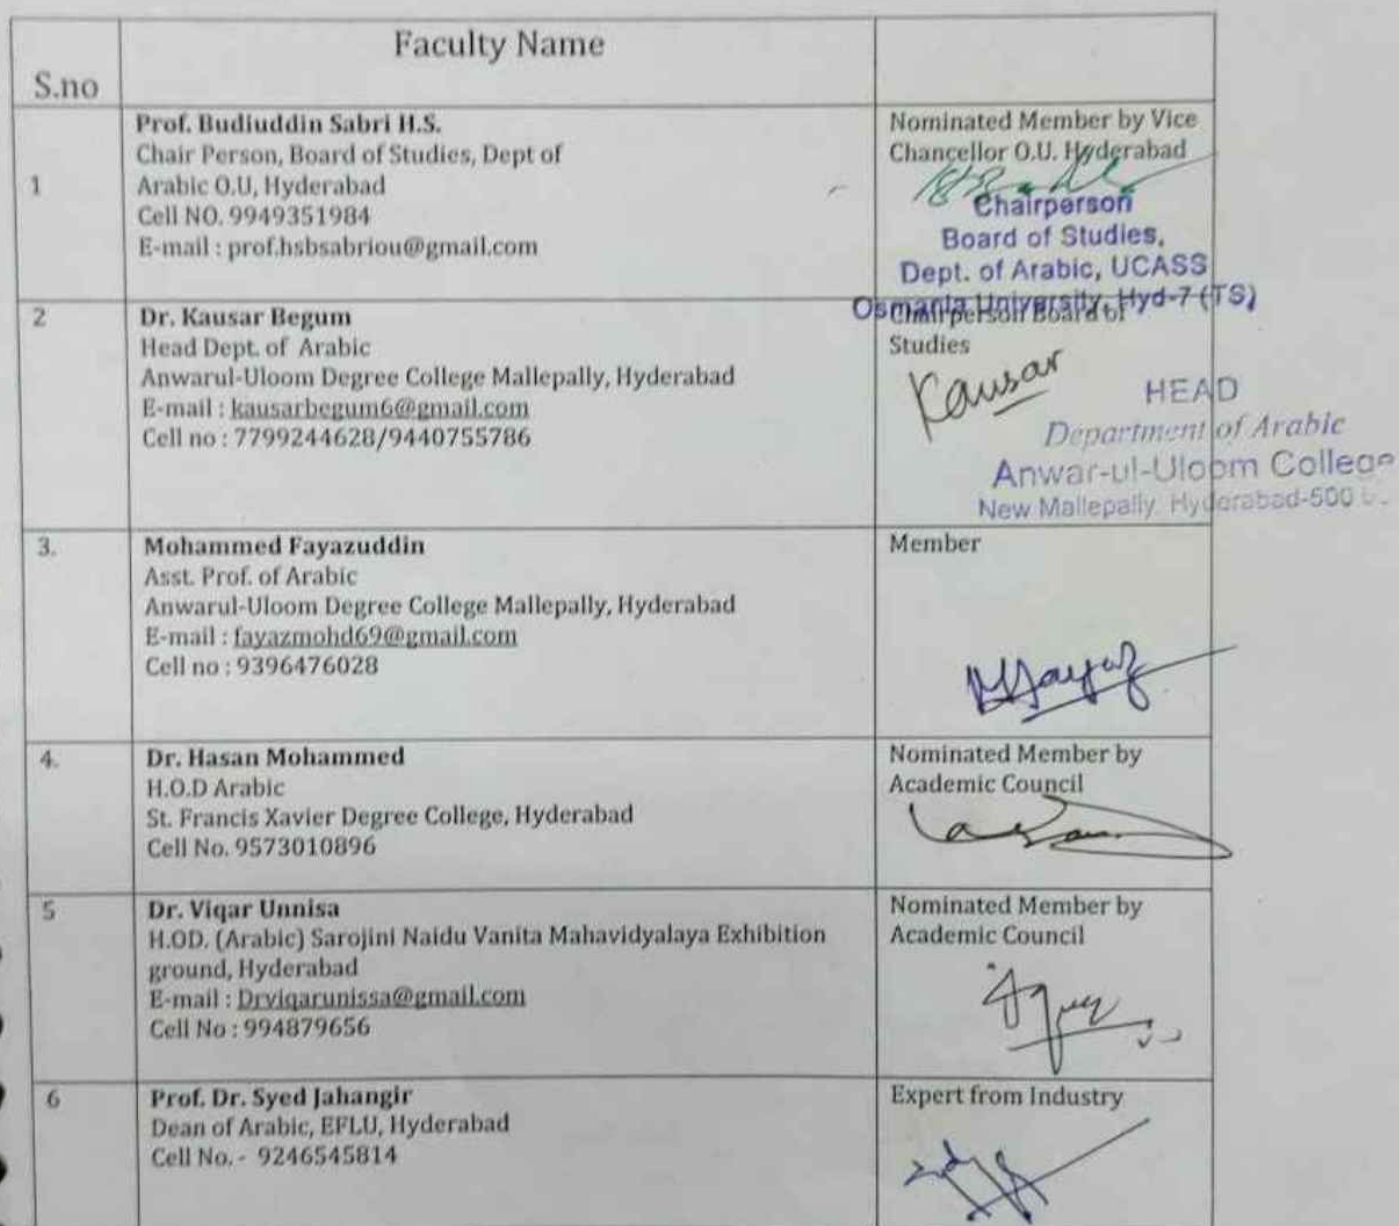 S.no
Faculty Name
1
Prof. Budiuddin Sabri H.S.
Chair Person, Board of Studies, Dept of
Arabic O.U, Hyderabad
Cell NO. 9949351984
E-mail : prof.hsbsabriou@gmail.com
Nominated Member by Vice
Chancellor O.U. Hyderabad
Chairperson
Board of Studies,
Dept. of Arabic, UCASS
Osmania University, Hyd-7 (TS)
2
Dr. Kausar Begum
Head Dept. of Arabic
Anwarul-Uloom Degree College Mallepally, Hyderabad
E-mail : kausarbegum6@gmail.com
Cell no : 7799244628/9440755786
Chairperson Board of
Studies
Kausar
HEAD
Department of Arabic
Anwar-ul-Uloom College
New Mallepally, Hyderabad-500
3.
Mohammed Fayazuddin
Asst. Prof. of Arabic
Anwarul-Uloom Degree College Mallepally, Hyderabad
E-mail : fayazmohd69@gmail.com
Cell no : 9396476028
Member
4.
Dr. Hasan Mohammed
H.O.D Arabic
St. Francis Xavier Degree College, Hyderabad
Cell No. 9573010896
Nominated Member by
Academic Council
5
Dr. Viqar Unnisa
H.OD. (Arabic) Sarojini Naidu Vanita Mahavidyalaya Exhibition
ground, Hyderabad
E-mail : Drviqarunissa@gmail.com
Cell No : 994879656
Nominated Member by
Academic Council
6
Prof. Dr. Syed Jahangir
Dean of Arabic, EFLU, Hyderabad
Cell No. - 9246545814
Expert from Industry